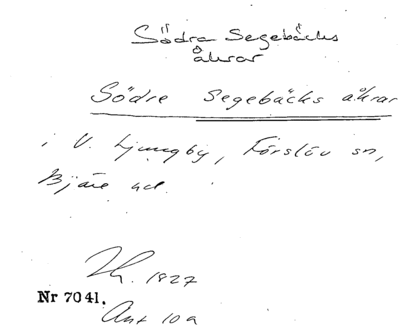 Södra Segebäcks
åkrar
Södre Segebäcks åkrar
i V. Ljungby, Förslöv sn,
Bjäre hd.
Lh. 1827
Nr 7041.
Ant 10a